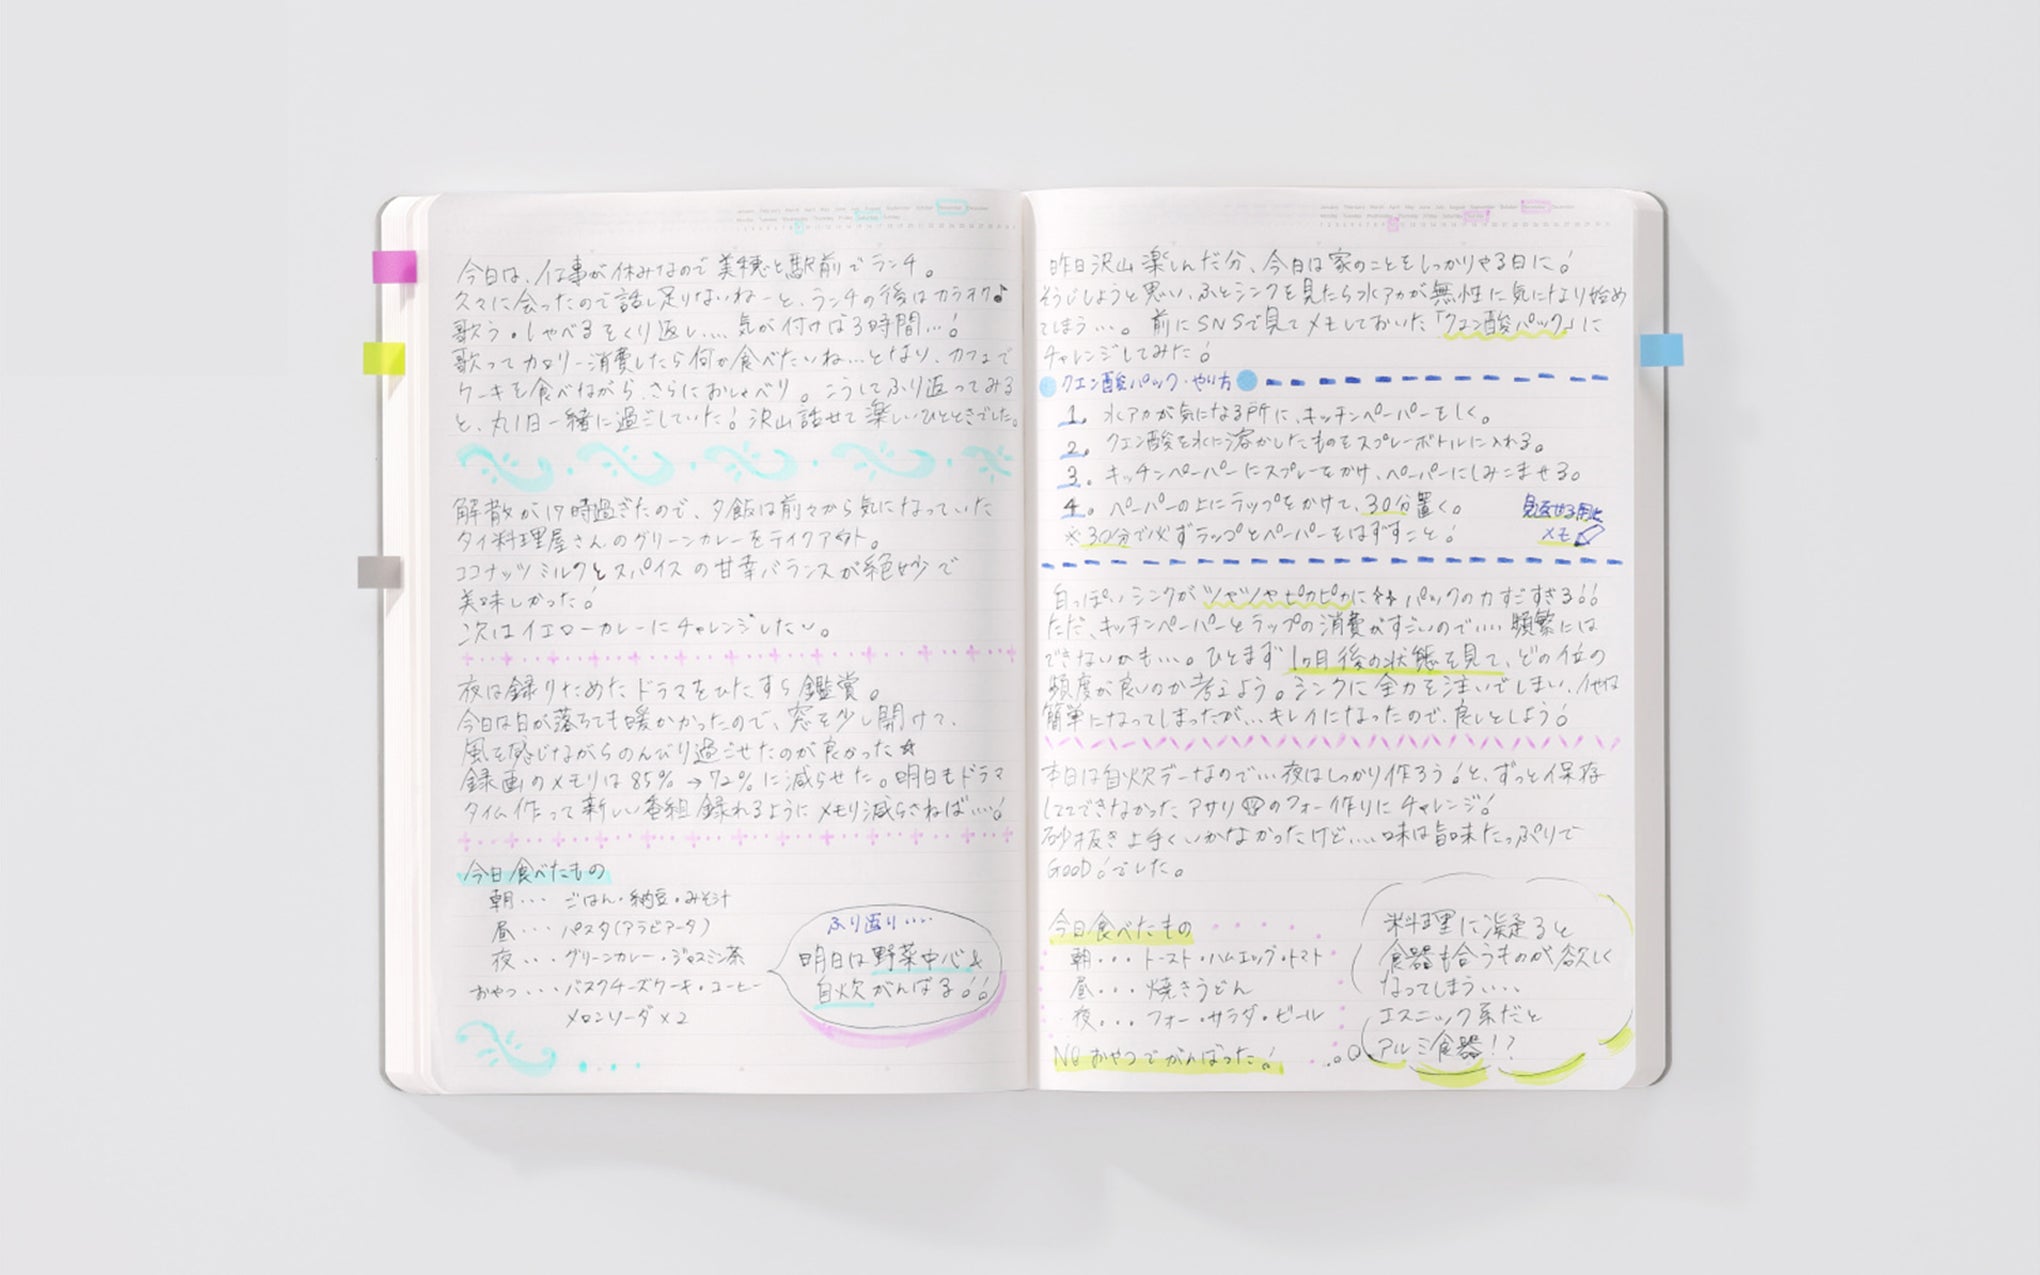 January February March April May June July August September October November December
Monday Tuesday Wednesday Thursday Friday Saturday Sunday
1 2 3 4 5 6 7 8 9 10 11 12 13 14 15 16 17 18 19 20 21 22 23 24 25 26 27 28 29 30 31
今日は、仕事が休みなので美穂と駅前でランチ。
久々に会ったので話し足りないねーと、ランチの後はカラオケ♪
歌う・しゃべるをくり返し…. 気が付けば3時間…!
歌ってカロリー消費したら何か食べたいね…となり、カフェで
ケーキを食べながら、さらにおしゃべり。こうしてふり返ってみる
と、丸1日一緒に過ごしていた!沢山話せて楽しいひとときでした。
解散が17時過ぎたので、夕飯は前々から気になっていた
タイ料理屋さんのグリーンカレーをテイクアウト。
ココナッツミルクとスパイスの甘辛バランスが絶妙で
美味しかった!
次はイエローカレーにチャレンジしたい〜。
夜は録りためたドラマをひたすら鑑賞。
今日は日が落ちても暖かかったので、窓を少し開けて、
風を感じながらのんびり過ごせたのが良かった☆
録画のメモリは85%→72%に減らせた。明日もドラマ
タイム作って新しい番組録れるようにメモリ減らさねば….!
今日食べたもの
朝… ごはん・納豆・みそ汁
昼… パスタ(アラビアータ)
夜… グリーンカレー・ジャスミン茶
おやつ… バスクチーズケーキ・コーヒー
メロンソーダ×2
ふり返り….
明日は野菜中心&
自炊がんばる!!
January February March April May June July August September October November December
Monday Tuesday Wednesday Thursday Friday Saturday Sunday
1 2 3 4 5 6 7 8 9 10 11 12 13 14 15 16 17 18 19 20 21 22 23 24 25 26 27 28 29 30 31
昨日沢山楽しんだ分、今日は家のことをしっかりやる日に!
そうじしようと思い、ふとシンクを見たら水アカが無性に気になり始め
てしまう…。前にSNSで見てメモしておいた「クエン酸パック」に
チャレンジしてみた!
クエン酸パック・やり方
1. 水アカが気になる所に、キッチンペーパーをしく。
2. クエン酸を水に溶かしたものをスプレーボトルに入れる。
3. キッチンペーパーにスプレーをかけ、ペーパーにしみこませる。
4. ペーパーの上にラップをかけて、30分置く。
※30分で必ずラップとペーパーをはずすこと!
見返せる用に
メモ
白っぽいシンクがツヤツヤピカピカに パックの力すごすぎる!!
ただ、キッチンペーパーとラップの消費がすごいので…. 頻繁には
できないかも…。ひとまず1ヶ月後の状態を見て、どの位の
頻度が良いのか考えよう。シンクに全力を注いでしまい、他は
簡単になってしまったが…キレイになったので、良しとしよう!
本日は自炊デーなので…夜はしっかり作ろう!と、ずっと保存
しててできなかったアサリのフォー作りにチャレンジ!
砂抜き上手くいかなかったけど….味は旨味たっぷりで
GOOD!でした。
今日食べたもの
朝… トースト・ハムエッグ・トマト
昼… 焼きうどん
夜… フォー・サラダ・ビール
NO おやつでがんばった!
料理に凝ると
食器も合うものが欲しく
なってしまう….
エスニック系だと
アルミ食器!?